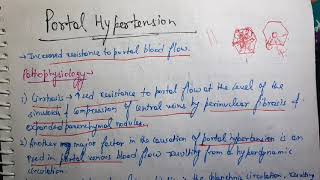 Portal Hypertension
→ Increased resistance to portal blood flow.
Pathophysiology
1) Cirrhosis → ↑sed resistance to portal flow at the level of the
sinusoids & compression of central veins by perinuclear fibrosis &
expanded parenchymal nodules.
2) Another major factor in the causation of portal hypertension is an
↑sed in portal venous blood flow resulting from a hyperdynamic
circulation.
in the splanchnic circulation, resulting